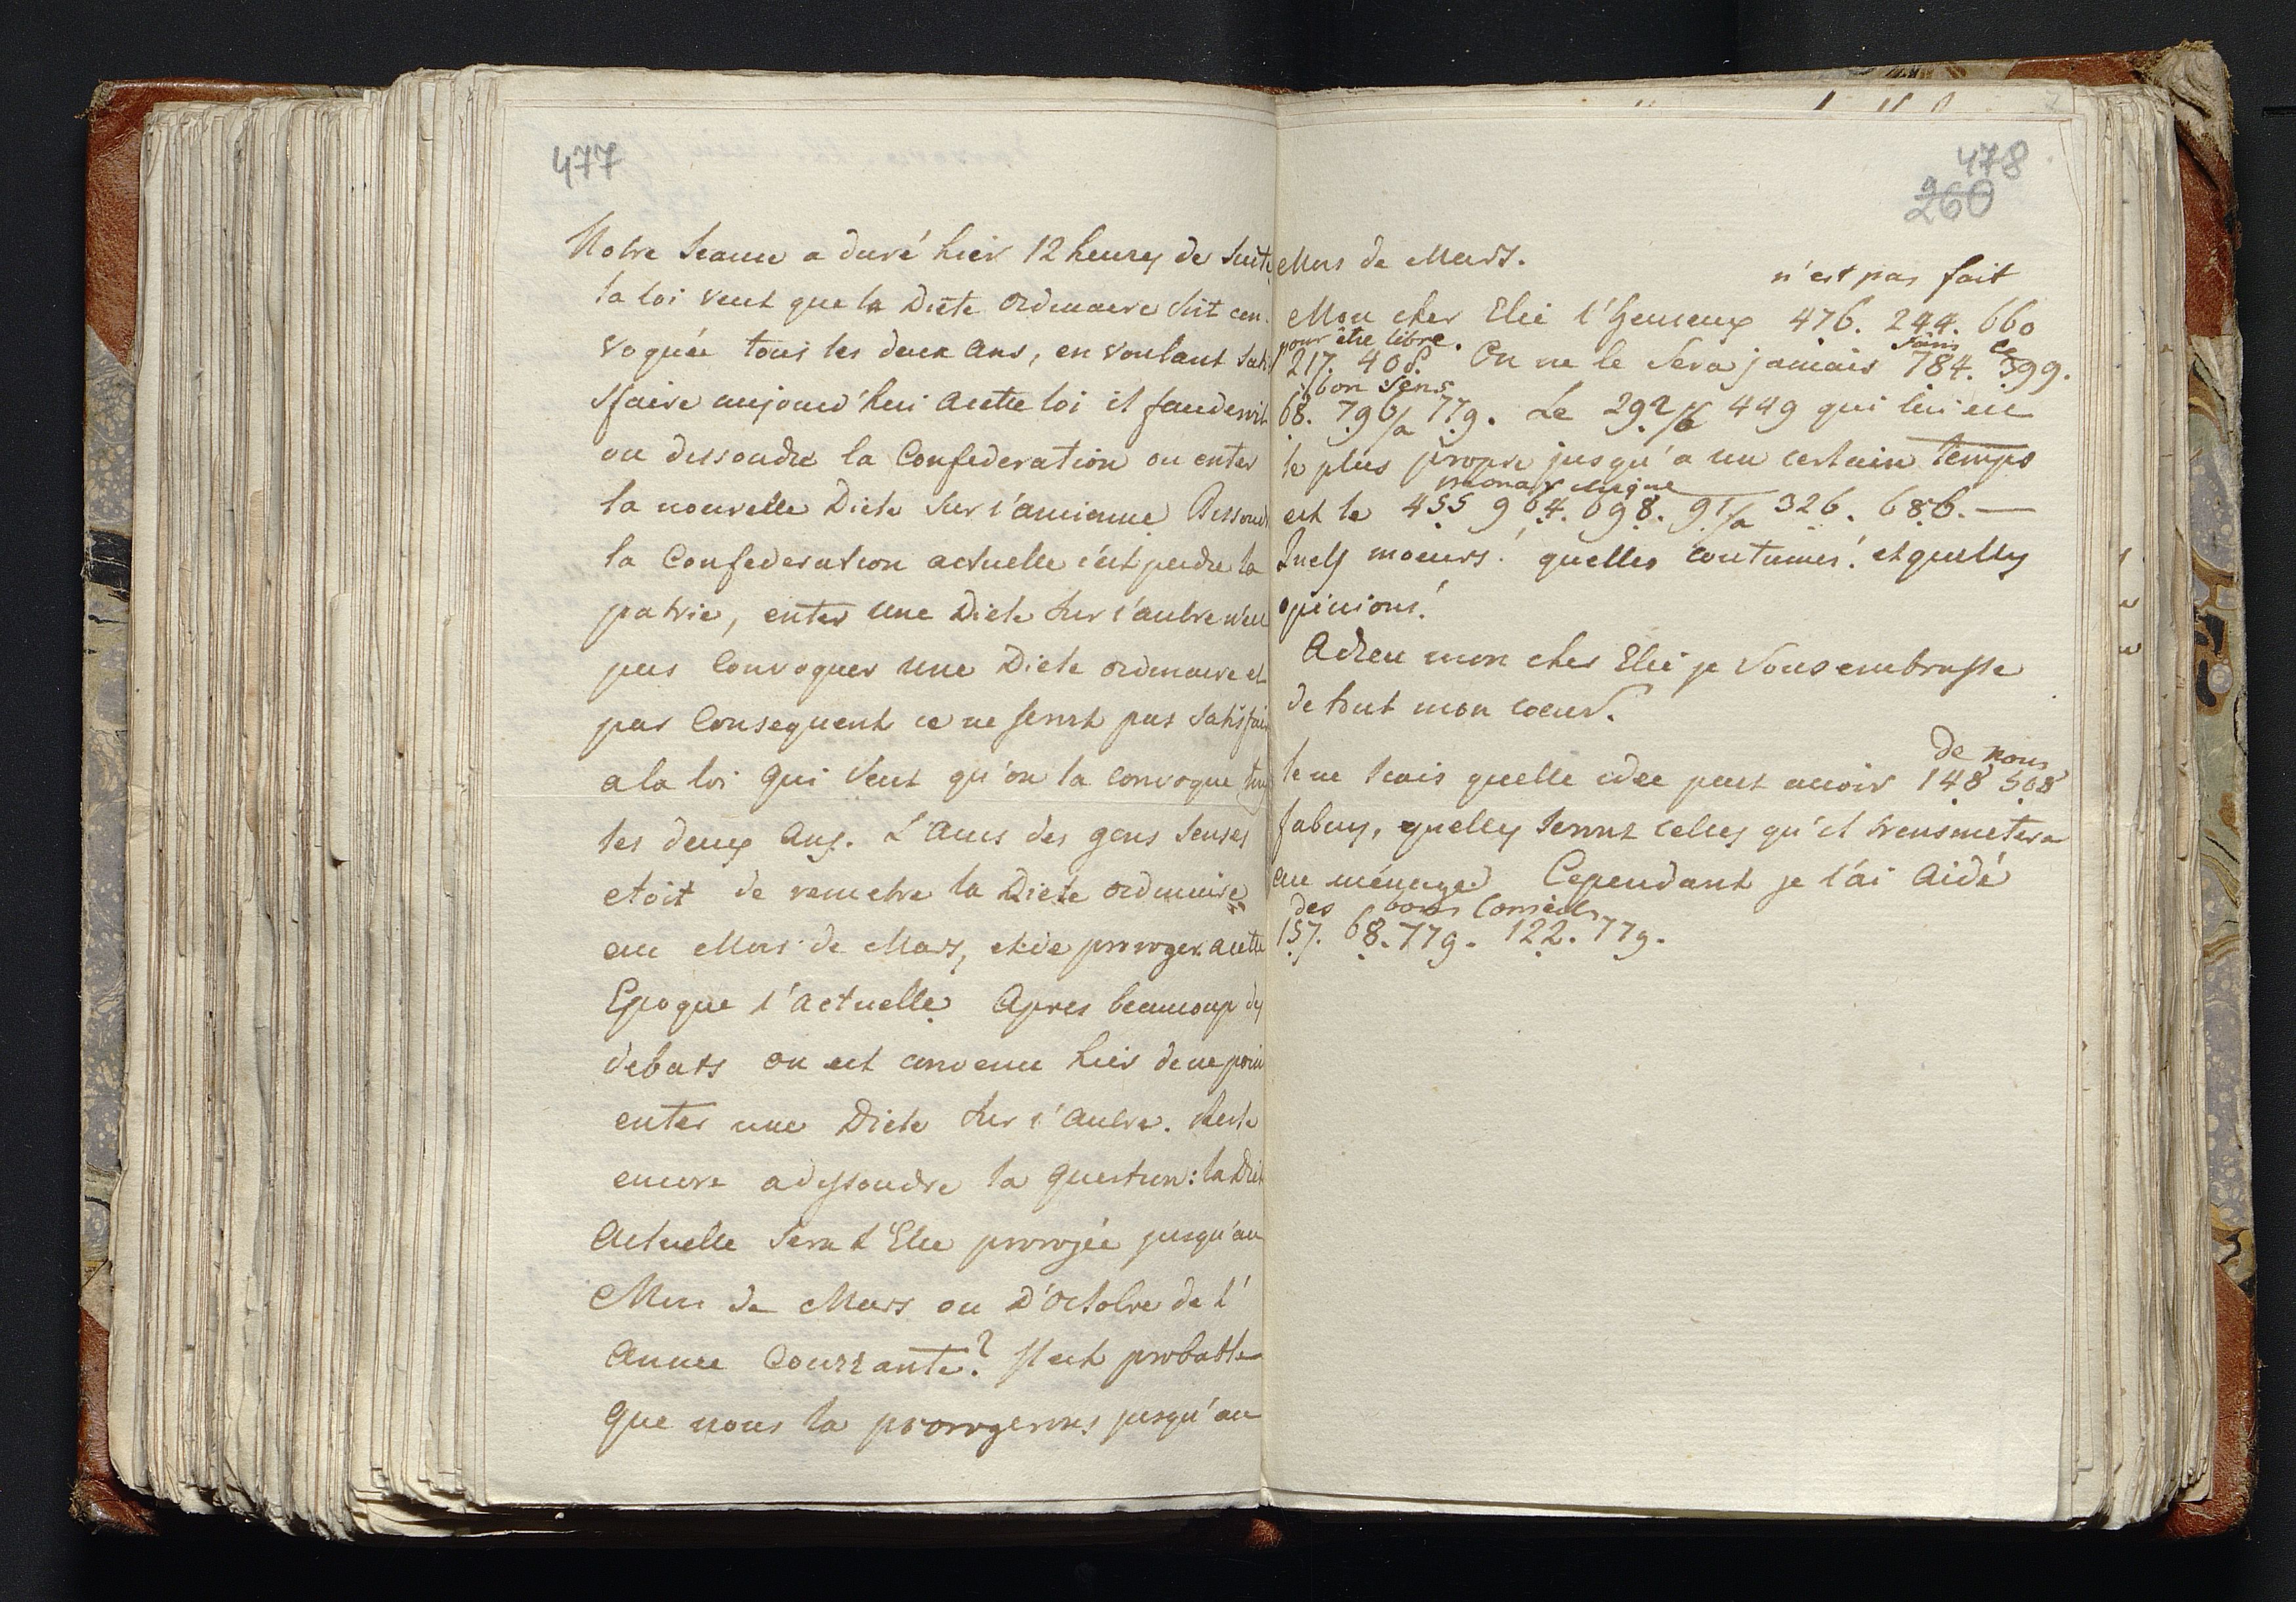 477
Notre Seance a duré hier 12 heures de Suite
la loi veut que la Diète ordinaire soit con-
voquée tous les deux ans, en voulant Sati
sfaire aujourd'hui a cette loi il faudroit
ou dissoudre la Confederation ou enter
la nouvelle Diete Sur l'ancienne Dissoud
la Confederation actuelle c'est perdre la
patrie, enter une Diete Sur l'autre n'est
pas Convoquer une Diete ordinaire et
par Consequent ce ne serait pas Satisfair
a la loi qui Veut qu'on la convoque tous
les deux Ans. L'Avis des gens Senses
etoit de remetre la Diete ordinaire
au Mois de Mars, et de proroger a cette
Epoque l'actuelle Apres beaucoup des
debats on est convenu hier de ne poin
enter une Diete Sur l'autre. Reste
encore a dissoudre la question: la Diet
Actuelle Sera t'Elle prorogée jusqu'au
Mois de Mars ou D'Octobre de l'
Annee Courrante? Il est probable
que nous la prorogerons jusqu'au
478
260
Mois de Mars.
n'est pas fait
Mon cher Elie l' 476. 244. 660
pour être libre. Sans ce
217. 408. On ne le Sera jamais 784. 399.
bon Sens
68. 796/a 779. Le 292/ 449 qui lui est
le plus propre jusqu'a un certain temps
monarchique
est le 455 964. 698. 91/a 326. 686. —
Quels moeurs! quelles coutumes! et quelles
opinions!
Adieu mon cher Elie je Vous embrasse
de tout mon coeur.
de nous
Je ne Scais quelle idee peut avoir 148 508
quelles Seront celles qu'il transmetera
au ménage Cependant je l'ai Aidé
des bons Conseils
157. 68. 779. 122. 779.